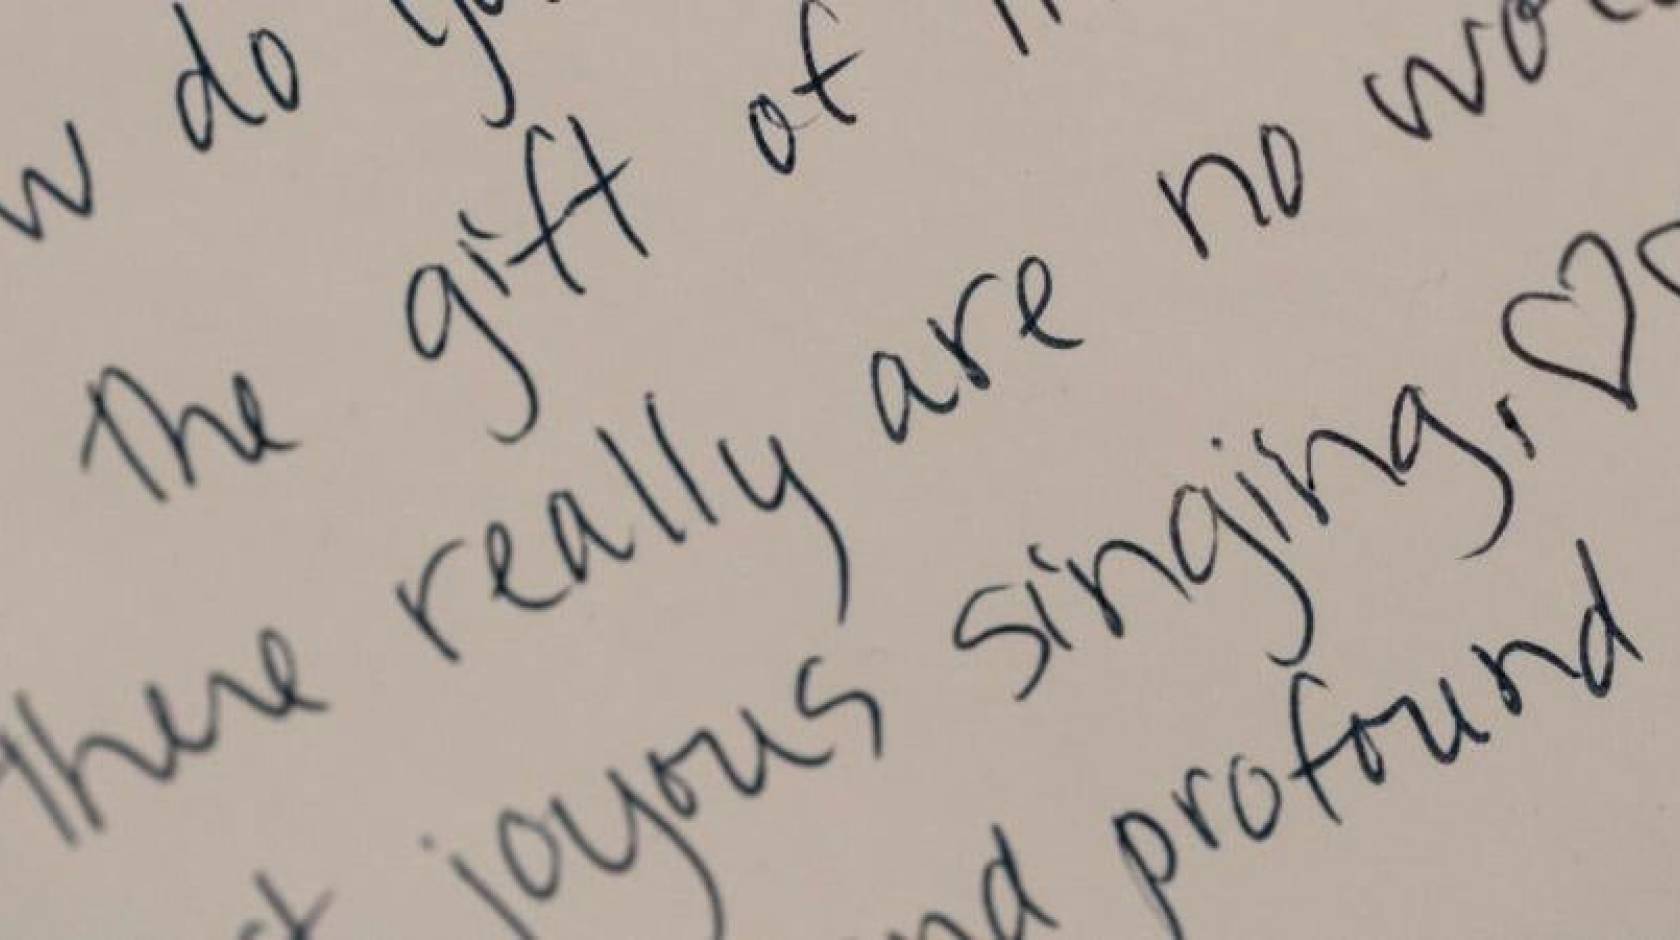 do
the gift of
there really are no
joyous singing,
profound